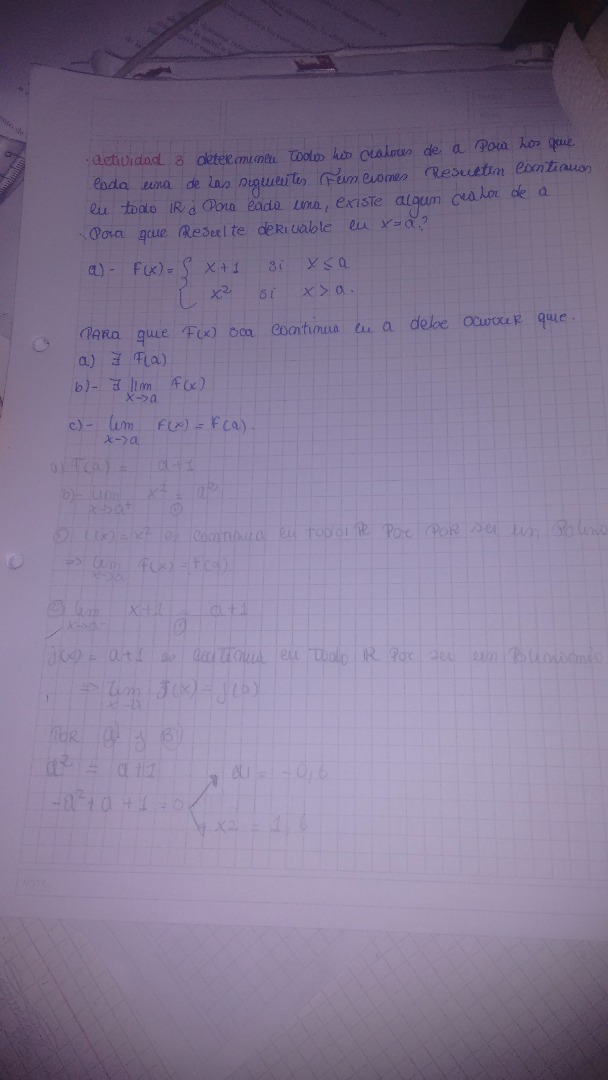 actividad 3 determinen todos los valores de a para los que
cada una de las siguientes Funciones Resulten continuas
en todo R ¿ Para cada una, existe algun valor de a
para que Resulte derivable en x=a?
a)- F(x) = { x+1 si x ≤ a
x² si x > a.
PARA que F(x) sea continua en a debe ocurrir que.
a) ∃ F(a)
b)- ∃ lim x→a F(x)
c)- lim x→a F(x) = F(a).
a) F(a) = a+1
b)- lim x→a⁺ x² = a²
es continua en todo R por ser un
⇒ lim x→a F(x) = F(a)
lim x→a⁻ x+1 = a+1
j(x) = a+1 es continua en todo R por ser un Polinomio
⇒ lim x→a j(x) = j(a)
POR a) y B)
a² = a+1
-a²+a+1=0
= -0,6
x2 = 1,6